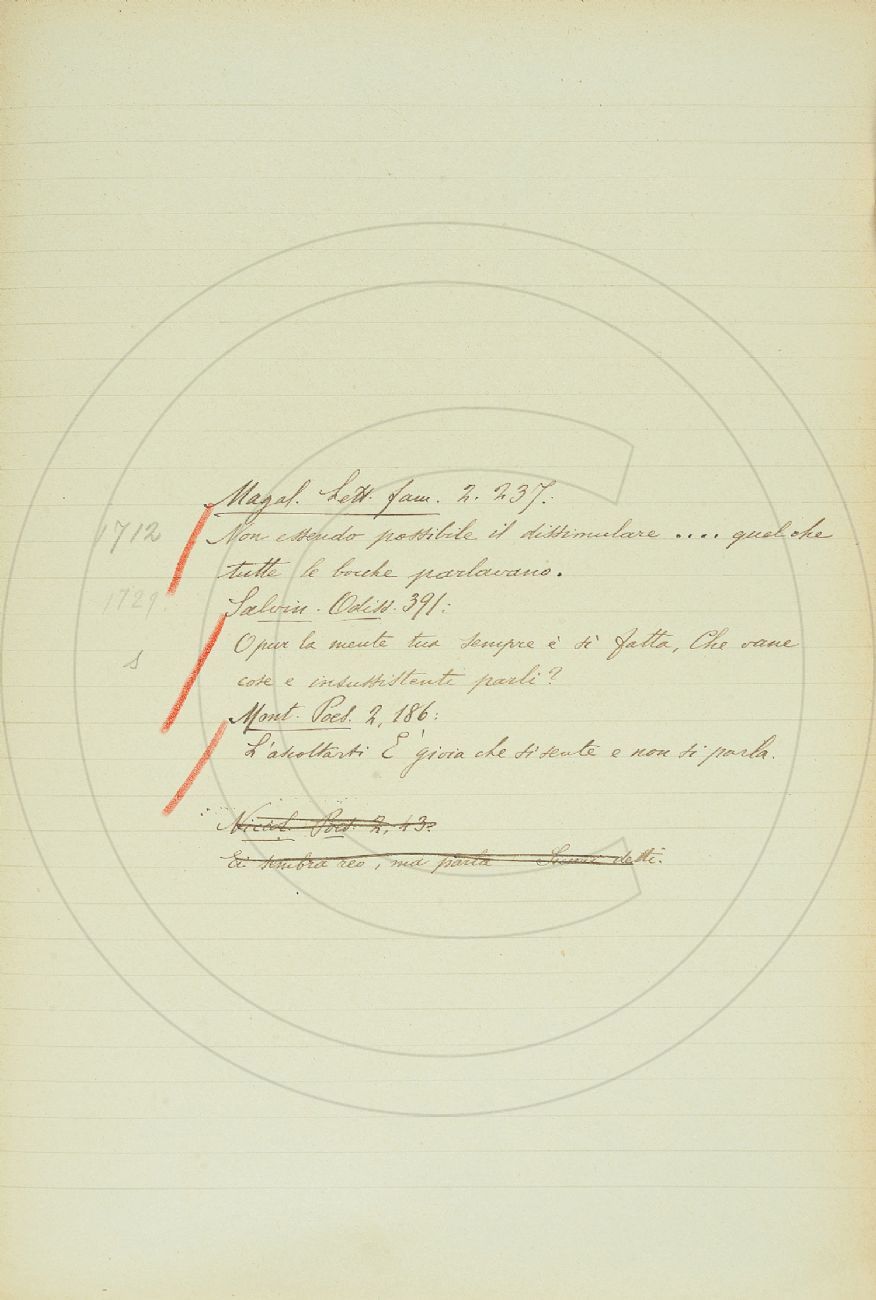 Magal. Lett. fam. 2. 237.:
1712 Non essendo possibile il dissimulare .... quel che
tutte le bocche parlavano.
1729. Salvin. Odiss. 391:
O pur la mente tua sempre è sì fatta, Che vane
s
cose e insussistenti parli?
Mont. Poes. 2, 186:
L'ascoltarti È gioia che si sente e non si parla.
Niccol. Poes. 2, 43:
Ei sembra reo, ma parla Sensi detti.